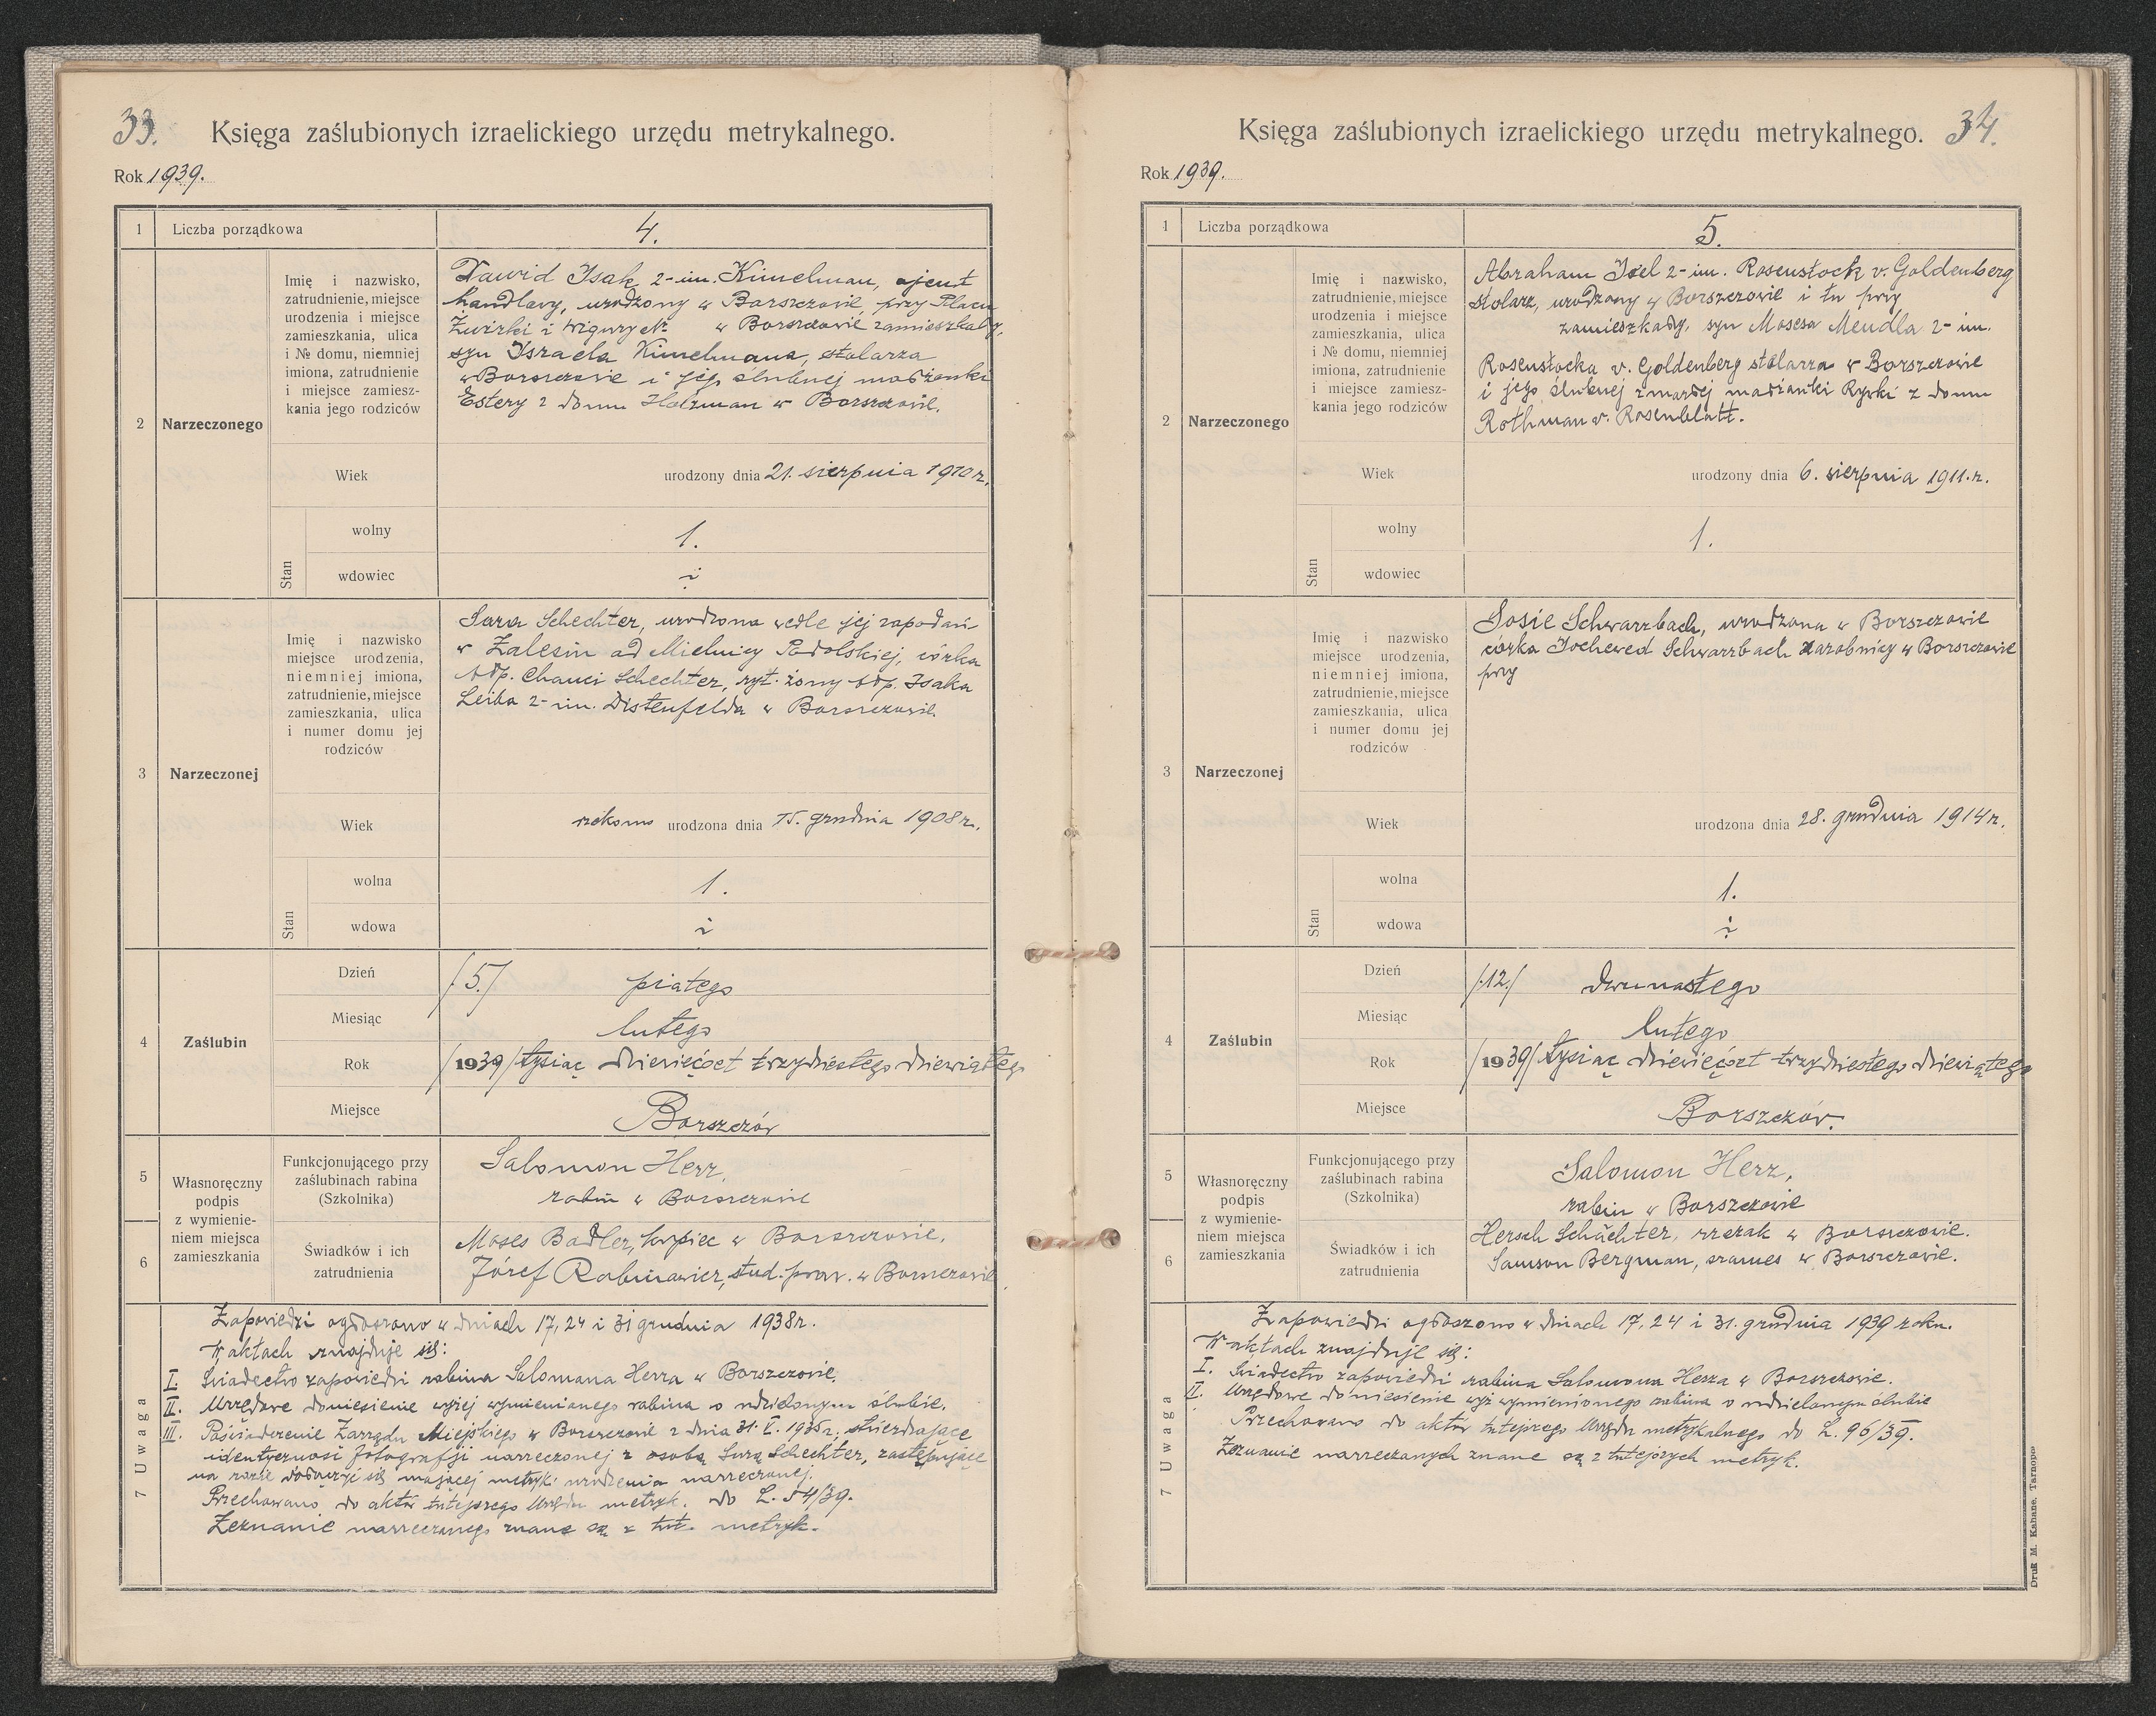 33.
Księga zaślubionych izraelickiego urzędu metrykalnego.
Rok 1939.
1 Liczba porządkowa 4.
2 Narzeczonego
Imię i nazwisko,
zatrudnienie, miejsce
urodzenia i miejsce
zamieszkania, ulica
i № domu, niemniej
imiona, zatrudnienie
i miejsce zamiesz-
kania jego rodziców
Dawid Isak 2-im. Kimelman, ajent
handlowy, urodzony w Borszczowie, przy Placu
Żwirki i Wigury № w Borszczowie zamieszkały,
syn Israela Kimelmana, stolarza
w Borszczowie i jego ślubnej małżonki
Estery z domu Holzman w Borszczowie.
Wiek urodzony dnia 21. sierpnia 1910 r.
Stan
wolny 1.
wdowiec
3 Narzeczonej
Imię i nazwisko
miejsce urodzenia,
niemniej imiona,
zatrudnienie, miejsce
zamieszkania, ulica
i numer domu jej
rodziców
Sara Schechter, urodzona wedle jej zapodań
w Zalesiu ad Mielnicy Podolskiej, córka
Chanci Schechter, ryt. żony Isaka
Leiba 2-im. Distenfelda w Borszczowie.
Wiek rzekomo urodzona dnia 15. grudnia 1908 r.
Stan
wolna 1.
wdowa
4 Zaślubin
Dzień /5./ piątego
Miesiąc lutego
Rok /1939/ tysiąc dziewięćset trzydziestego dziewiątego
Miejsce Borszczów
Własnoręczny
podpis
z wymienie-
niem miejsca
zamieszkania
5 Funkcjonującego przy
zaślubinach rabina
(Szkolnika)
Salomon Herz,
rabin w Borszczowie
6 Świadków i ich
zatrudnienia
Moses Badler, kupiec w Borszczowie.
Józef Rabinowicz, stud. praw. w Borszczowie
7 Uwaga
Zapowiedzi ogłoszono w dniach 17, 24 i 31 grudnia 1938 r.
W aktach znajduje się:
I. Świadectwo zapowiedzi rabina Salomona Herza w Borszczowie.
II. Urzędowe doniesienie wyżej wymienionego rabina o udzielonym ślubie.
III. Poświadczenie Zarządu Miejskiego w Borszczowie z dnia 31. V. 1935 r. stwierdzające
identyczność fotografji narzeczonej z osobą Surą Schechter, zastępujące
na razie dołączyć się mającej metryki urodzenia narzeczonej.
Przechowano do aktów tutejszego Urzędu metryk. do L. 54/39.
Zeznanie narzeczonego znane są z tut. metryk.
34.
Księga zaślubionych izraelickiego urzędu metrykalnego.
Rok 1939.
1 Liczba porządkowa 5.
2 Narzeczonego
Imię i nazwisko,
zatrudnienie, miejsce
urodzenia i miejsce
zamieszkania, ulica
i № domu, niemniej
imiona, zatrudnienie
i miejsce zamiesz-
kania jego rodziców
Abraham 2-im. Rosenstock v. Goldenberg
stolarz, urodzony w Borszczowie i tu przy
zamieszkały, syn Mosesa Mendla 2-im.
Rosenstocka v. Goldenberg stolarza w Borszczowie
i jego ślubnej zmarłej małżonki Rywki z domu
Rothman v. Rosenblatt.
Wiek urodzony dnia 6. sierpnia 1911. r.
Stan
wolny 1.
wdowiec
3 Narzeczonej
Imię i nazwisko
miejsce urodzenia,
niemniej imiona,
zatrudnienie, miejsce
zamieszkania, ulica
i numer domu jej
rodziców
Sosie Schwarzbach, urodzona w Borszczowie
córka Jochewed Schwarzbach zarobnicy w Borszczowie
przy
Wiek urodzona dnia 28. grudnia 1914 r.
Stan
wolna 1.
wdowa
4 Zaślubin
Dzień /12./ dwunastego
Miesiąc lutego
Rok /1939/ tysiąc dziewięćset trzydziestego dziewiątego
Miejsce Borszczów.
Własnoręczny
podpis
z wymienie-
niem miejsca
zamieszkania
5 Funkcjonującego przy
zaślubinach rabina
(Szkolnika)
Salomon Herz,
rabin w Borszczowie
6 Świadków i ich
zatrudnienia
Hersch Schächter, rzezak w Borszczowie.
Samson Bergman, szames w Borszczowie.
7 Uwaga
Zapowiedzi ogłoszono w dniach 17, 24 i 31. grudnia 1939 roku.
W aktach znajduje się:
I. Świadectwo zapowiedzi rabina Salomona Herza w Borszczowie.
II. Urzędowe doniesienie wyż wymienionego rabina o udzielonym ślubie
Przechowano do aktów tutejszego Urzędu metrykalnego do L. 96/39.
Zeznanie narzeczonych znane są z tutejszych metryk.
Druk M. Kahane, Tarnopol